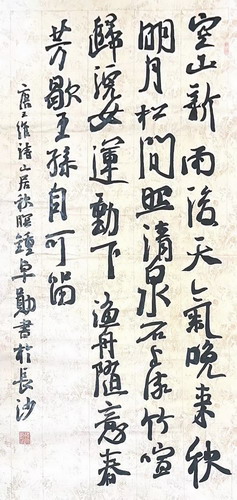 空山新雨後天氣晚来秋
明月松間照清泉石上流竹喧
歸浣女蓮動下漁舟隨意春
芳歇王孫自可留
唐王維詩山居秋暝鍾卓勛書於長沙